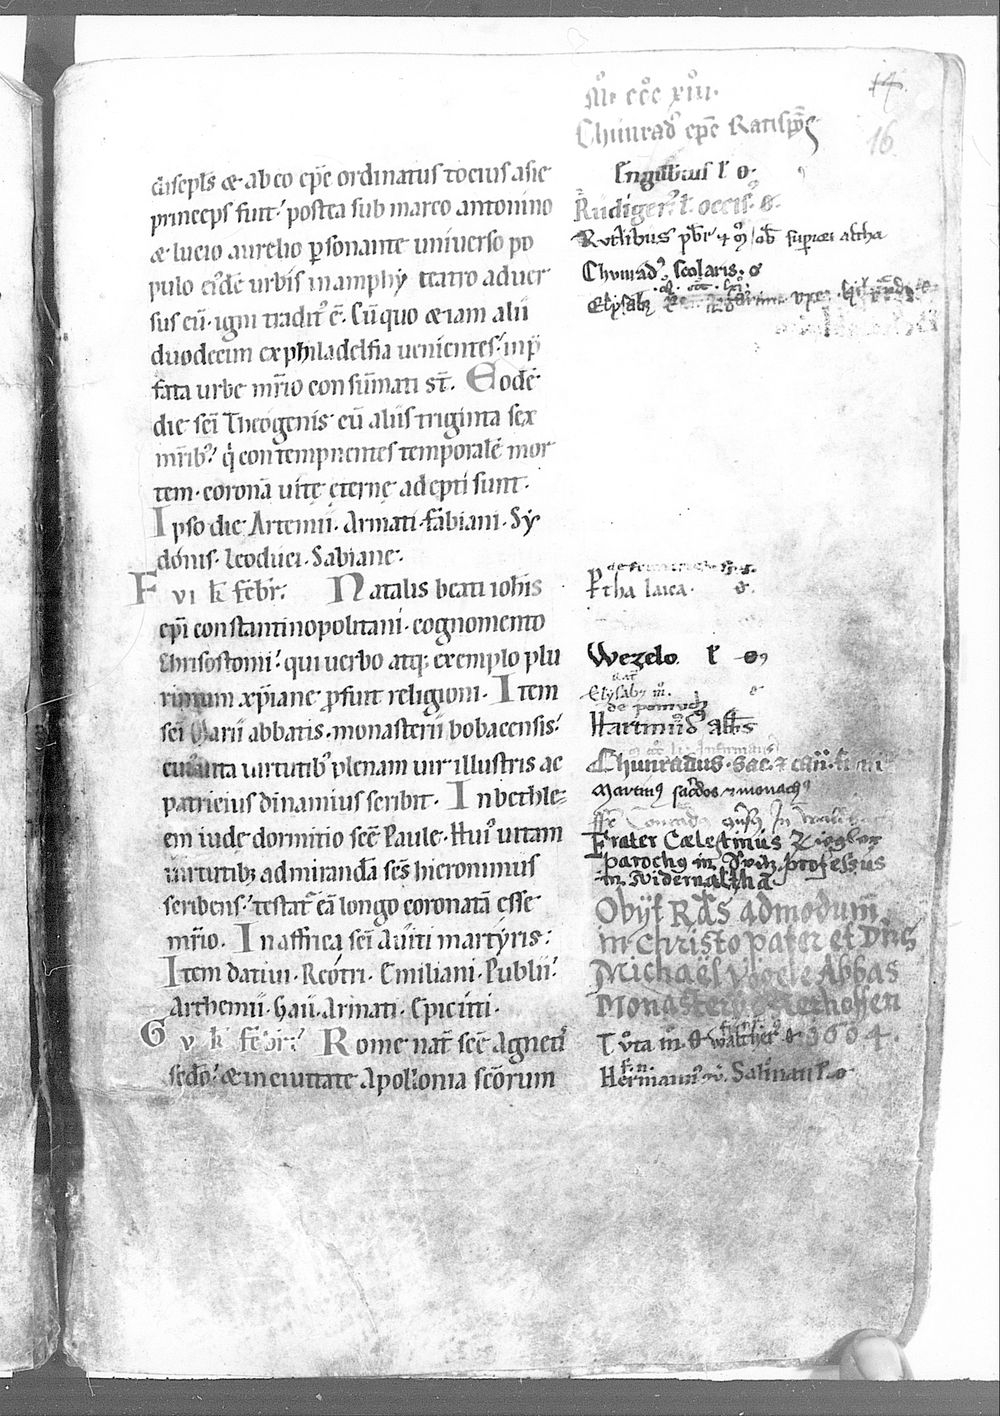 discipłs & ab eo epē ordinatus tocius asie
princeps fuit. postea sub marco antonino
& lucio aurelio ꝑsonante universo po
pulo eiꝰdē urbis in amphy teatro adver
sus eū. igni tradiť ē. Cū quo & iam alii
duodecim ex philadelfia uenientes. in p̄
fata urbe mr̄io consūmati st̄. Eodē
die scī Theogenis cū aliis triginta sex
mr̄ibꝰ. q̇ contempnentes temporalē mor
tem. coronā uitę eternę adepti sunt.
Ipso die Artemii. Armati. fabiani. Sy
donis. Leoduci. Sabiane.
F vi k̄ febr̄. Natalis beati iohīs
epī constantinopolitani. cognomento
Chrisostomi. qui uerbo atq; exemplo plu
rimum xp̄iane ꝓfuit religioni. Item
scī Marii abbatis. monasterii bobacensis.
cuius uita uirtutibꝰ plenam uir illustris ac
patricius dinamius scribit. In bethle-
em iude dormitio scē Paule. Huiꝰ uitam
uirtutibꝫ admirandā scs̄ hieronimus
scribens. testať eā longo coronatā esse
mr̄io. In affrica scī Auiti martyris.
Item datiui. Reotri. Emiliani. Publii.
Arthemii. Gaii. Armati. Epicitti.
G v k̄ febr̄. Rome nať scē Agnetis
scđo. & in ciuitate Apollonia scōrum
14.
16
M. ccc xiii.
Chunrad epē Ratisp̄
Engilbertus ł o.
Rudigerꝰ. ł. occisꝰ. o.
Chunradꝰ scolaris. o
Elysabꝫ
Ꝑtha laica. o.
Wezelo ł o,
Elysabꝫ m.
de
Hartmuď abb̄s
Chunradus. sac. & can.
Martinꝰ sacdos & monachꝰ
Frater Cælestinus Ziegler
parochꝰ in professus
in Nideraltha
Obijt Rds̄ admodum
in christo pater et Dn̄s
Michaël Vögele Abbas
Monasterii Metthessen
Tuta m. & walther 1604.
Hermannꝰ Salman ł. o